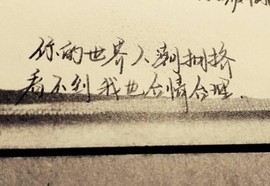 你的世界人潮拥挤
看不到我也合情合理.